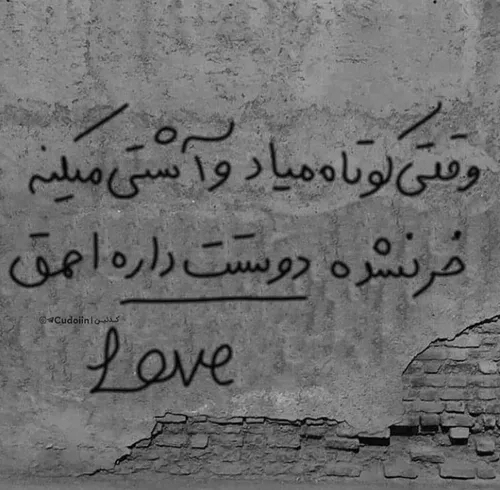 وقتی کوتاه میاد و آشتی میکنه
خر نشده دوستت داره احمق
©Cudolin | کدلین
Love